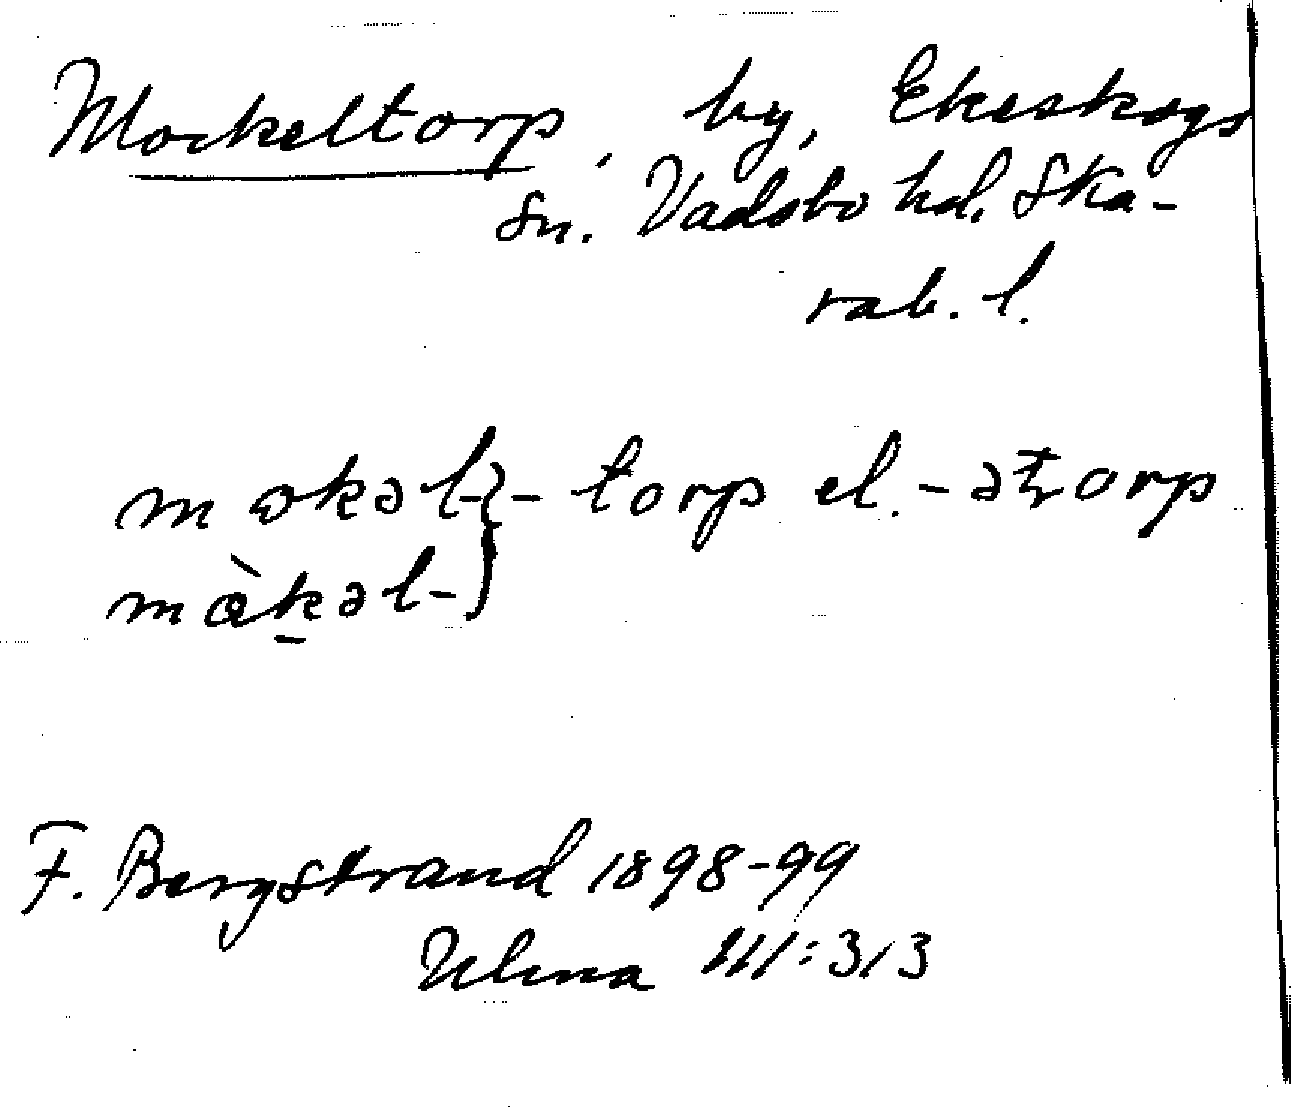 Mockeltorp, by, Ekeskogs
Sn. Vadsbo hd. Ska-
rab. l.
mɷkəl-}-torp el. -əʈorp
mɷ̀kəl-}
F. Bergstrand 1898-99
Ulma 111:313